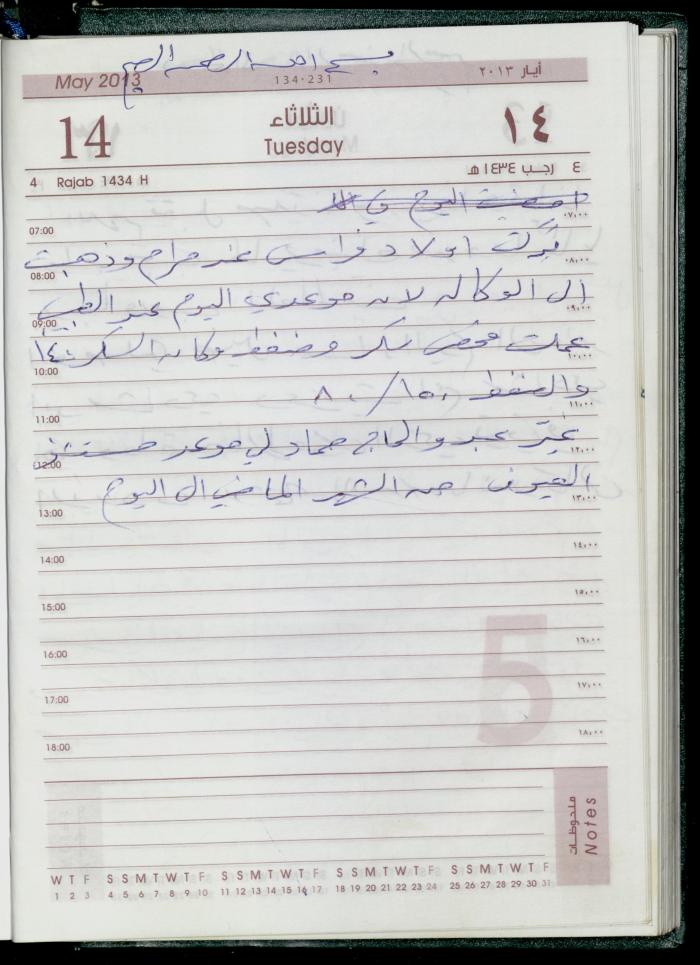 بسم الله الرحمن الرحيم
May 2013
134-231
أيار ٢٠١٣
14
الثلاثاء
Tuesday
١٤
4 Rajab 1434 H
٤ رجب ١٤٣٤ هـ
اليوم في
07:00
٠٧,٠٠
تركت اولاد فراس عند مرام وذهبت
08:00
٠٨,٠٠
الى الوكاله لانه موعدي اليوم عند الطبيب
09:00
٠٩,٠٠
عملت فحص سكر وضغط وكان السكر ١٤٠
10:00
١٠,٠٠
والضغط ١٥٠/٨٠
11:00
١١,٠٠
غير عبد والحاج حماد لي موعد مستشفى
12:00
١٢,٠٠
العيون من الشهر الماضي الى اليوم
13:00
١٣,٠٠
14:00
١٤,٠٠
15:00
١٥,٠٠
16:00
١٦,٠٠
17:00
١٧,٠٠
18:00
١٨,٠٠
5
ملحوظات
Notes
W T F S S M T W T F S S M T W T F S S M T W T F S S M T W T F
1 2 3 4 5 6 7 8 9 10 11 12 13 14 15 16 17 18 19 20 21 22 23 24 25 26 27 28 29 30 31